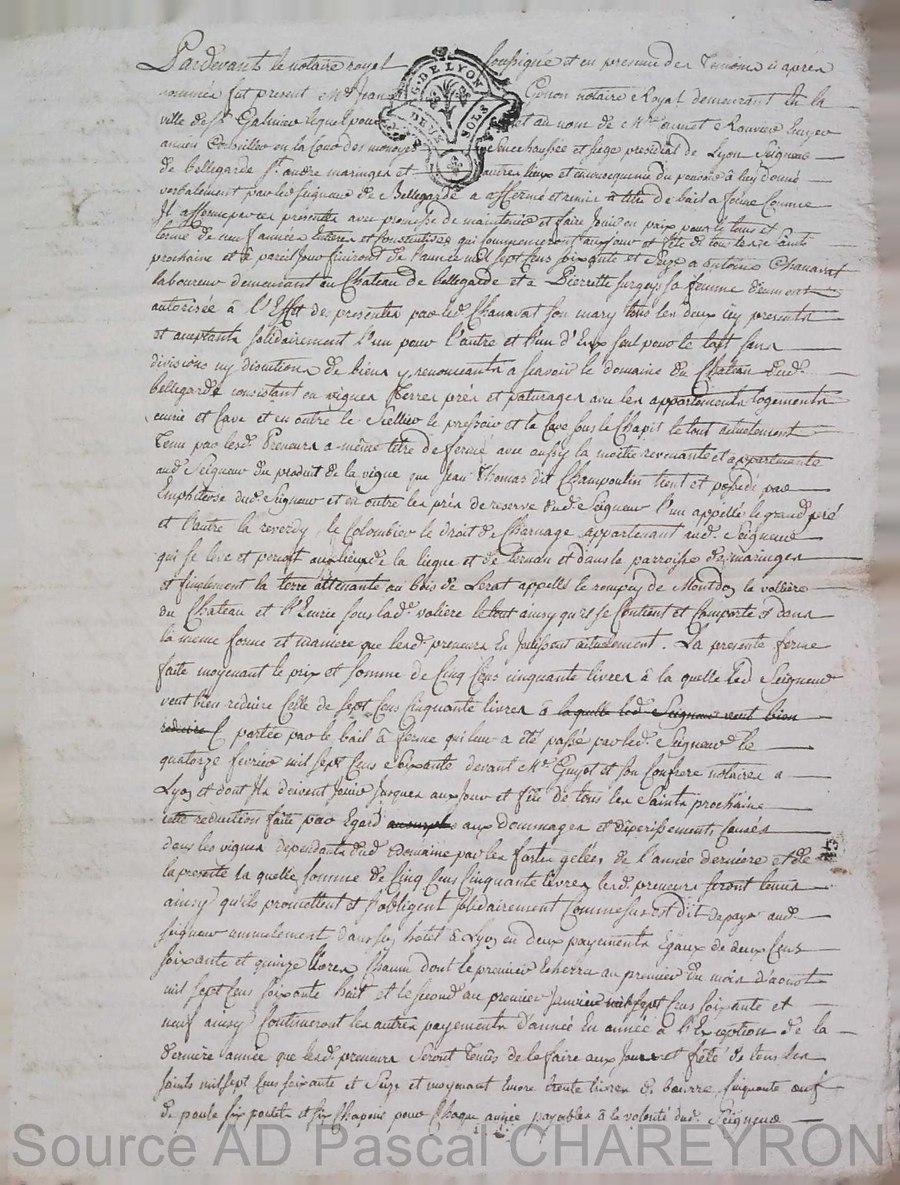 Pardevant le notaire royal soussigné et en presence des temoins cy après
nommés fut present Me Jean Genon notaire Royal demeurant en la
ville de St Galmier lequel pour et au nom de
ancien Conseiller en la Cour des monoyes Senechaussée et siege presidial de Lyon Seigneur
de bellegarde St andré maringes et autres lieux et ensuite du pouvoir à luy donné
verbalement par led seigneur de Bellegarde a affermé et remis à titre de bail a ferme Comme
Il afferme par ces presentes avec promesse de maintenir et faire jouir en paix pour le tems et
terme de neuf années Entieres et Consecutives qui commenceront au jour et fête de tous les Saints
prochaine et a pareil jour finiront de l'année mil sept Cens soixante et Seize a antoine Chanavat
laboureur demeurant au Chateau de bellegarde et a Pierrette surgey sa femme deument
autorisée à l'Effet des presentes par led Chanavat son mary tous les deux icy presents
et aceptants solidairement l'un pour l'autre et l'un d'Eux seul pour le tout sans
divisions ny discution de biens y renonceants a scavoir le domaine du Chateau dud.
bellegarde consistant en vignes Terres prés et paturages avec les appartements logements
ecurie et Cave et en outre le Sellier le pressoir et la Cave sous le Chapit le tout actuelement
Tenu par lesd. Preneurs a même titre de ferme avec aussy la moitié revenante et appartenante
aud. Seigneur du produit de la vigne que Jean Thomas dit Champoulin tient et possede par
Emphiteose dud. Seigneur et en outre les prés de reserve dud. Seigneur l'un appellé le grand pré
et l'autre la reverdy, le Colombier le droit de Charnage appartenant aud. Seigneur
qui se leve et perçoit aux lieux de la ligue et de Ternan et dans la parroisse de maringes
et finalement la terre attenante au bois de Lerat appellé le rompey de Montdoz la voliere
du Chateau et l'Ecurie sous lad. voliere le tout ainsy qu'il se Contient et Comporte et dans
la meme forme et maniere que lesd. preneurs En Joüissent actuelement. La presente ferme
faite moyenant le prix et somme de Cinq Cens cinquante livres à la quelle led Seigneur
veut bien reduire Celle de sept Cens Cinquante livres à la quelle led. Seigneur veut bien
reduire portée par le bail à ferme qui leur a été passé par led. Seigneur le
quatorze fevrier mil sept Cens Soixante devant Me Guyot et son Confrere notaires a
Lyon et dont ils doivent Jouir Jusques au Jour et fête de tous les Saints prochaine
cette reduction faite par Egard aux dommages et deperissements Causés
dans les vignes dependants dud Domaine par les fortes gelées de l'année derniere et de
la presente la quelle somme de Cinq Cens Cinquante livres lesd. preneurs seront tenus
ainsy qu'ils promettent et s'obligent solidairement Comme sus est dit de payer aud.
seigneur annuelement dans son hotel à Lyon en deux payements Egaux de deux Cens
soixante et quinze livres Chacun dont le premier Echerra au premier du mois d'aoust
mil sept Cens soixante huit et le second au premier Janvier mil sept Cens soixante et
neuf ainsy Continueront les autres payements d'année En année à l'Exception de la
derniere année que lesd. preneurs seront Tenus de le faire aux Jour et fête de tous les
saints mil sept Cens soixante et Seize et moyenant Encore trente livres de beurre, Cinquante œuf
de poule six poulets et six Chapons pour Chaque année payables à la volonté dud. Seigneur
G. DE LYON
DEUX SOLS
Source AD Pascal CHAREYRON